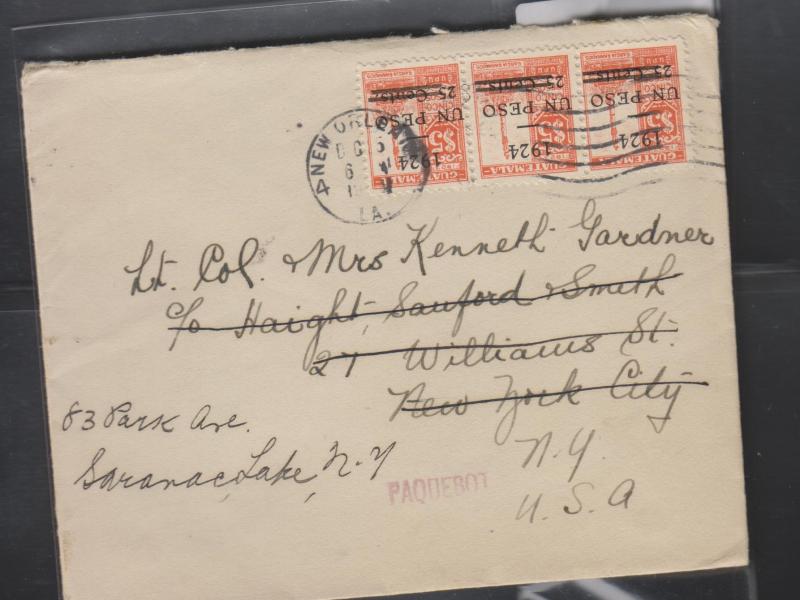 GUATEMALA
$5
1924
UN PESO
25 Cents.
GUATEMALA
$5
1924
UN PESO
25 Cents.
GUATEMALA
$5
1924
UN PESO
25 Cents.
4 NEW ORLE
LA.
Lt. Col. & Mrs Kenneth Gardner
c/o Haight, Sanford & Smith
27 Williams St.
New York City
N.Y.
U.S.A
83 Park Ave.
Saranac Lake, N.Y
PAQUEBOT